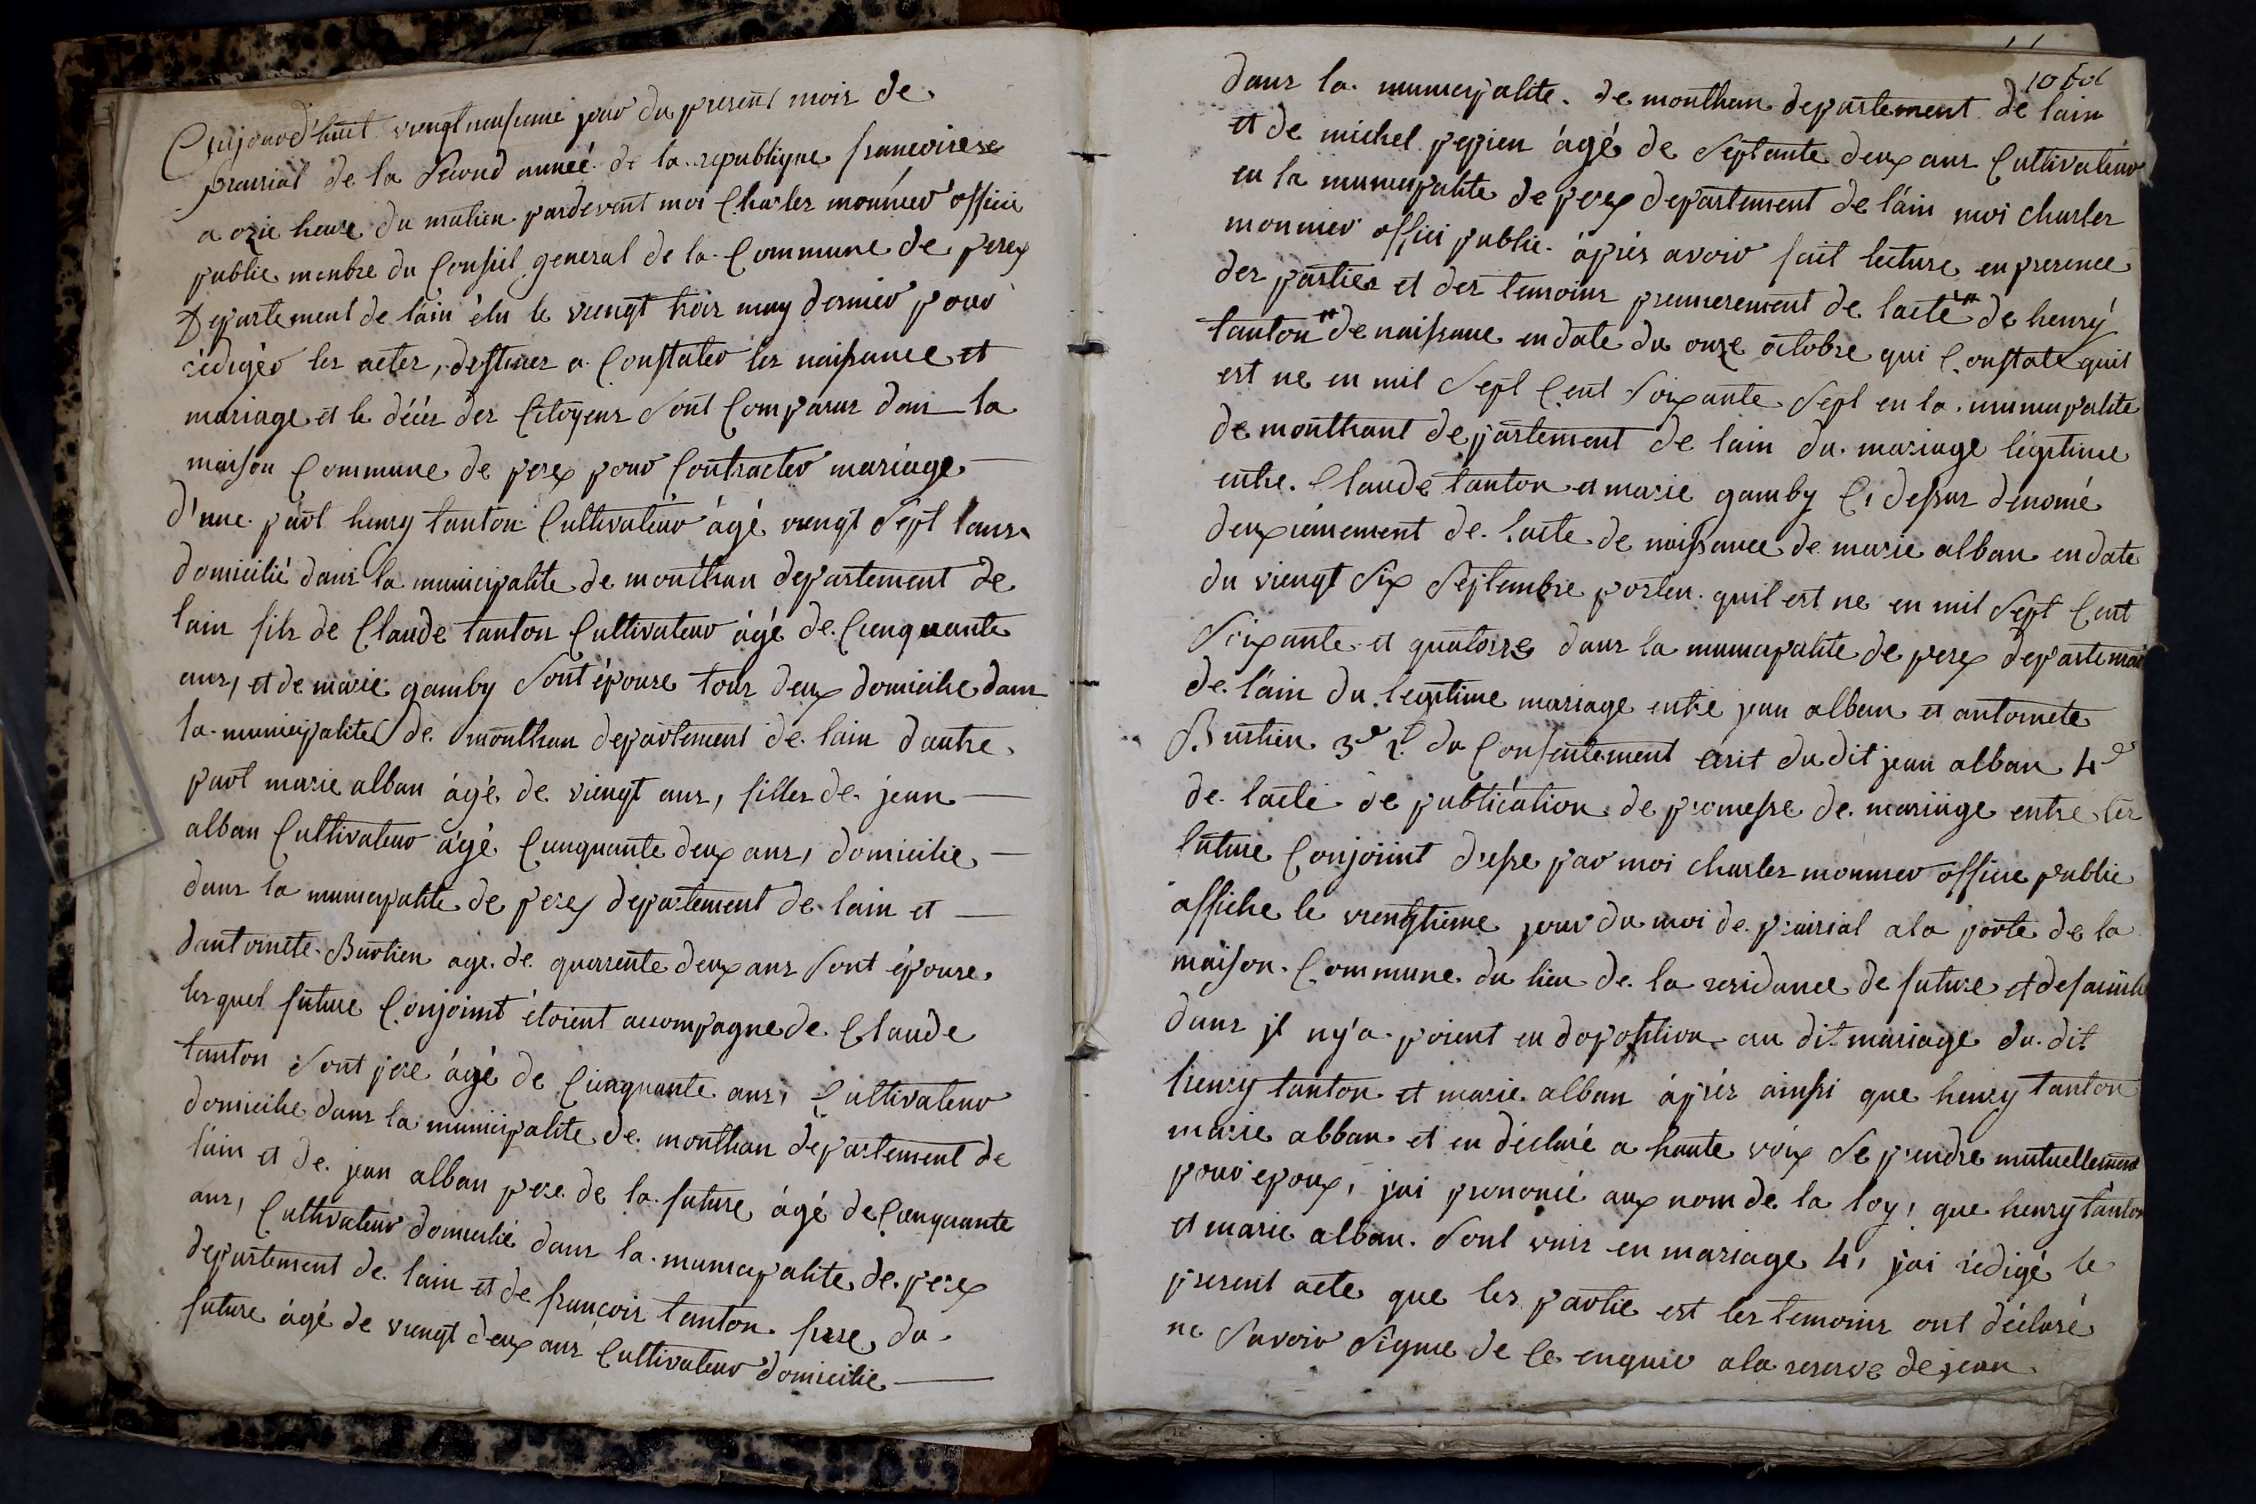 Aujourd'huit viengt neufieme jour du present mois de
prairial de la Second anneé de la republique francoirese
a ozie heure du matien pardevent moi Charles monnier officié
public menbre du Conseil general de la Commune de perex
Departement de lain élu le viengt trois may dernier pour
rédigér les actes, destines a Constater les naissance et
mariage et le décés des Citoyens Sont Comparus dans la
maison Commune de perex pour Contracter mariage
d'une part henry tanton Cultivateur ágé viengt Sept tans
domicilié dans la municipalite de monthan departement de
lain fils de Claude tanton Cultivateur ágé de Cienquante
ans, et de marie gamby Sont épouse tous deux domicilie dans
la municipalites de monthan departement de lain dautre
part marie alban ágé de viengt ans, filles de jean
alban Cultivateur ágé Cienquante deux ans, domicilie
dans la municipalite de perex departement de lain et
dantoinete Burtien age de quarente deux ans Sont épouse
lesquel future Conjoint étoient accompagne de Claude
tanton Sont pere ágé de Cienquante ans, Cultivateur
domicilie dans la municipalite de monthan departement de
lain et de jean alban pere de la future ágé de Cienquante
ans, Cultivateur domicilié dans la municipalite de perex
departement de lain et de françois tanton frere du
future ágé de viengt deux ans Cultivateur domicilie
10
dans la municipalite de monthan departement de lain
et de michel pepien ágé de Septante deux ans Cultivateur
en la municipalite de perex departement de láin moi charles
monnier offici public áprés avoir fait lecture en presence
des parties et des temoins premierement de lacte de henry
tanton de naissance en date du onze octobre qui Constate quil
est ne en mil Sept Cent Soixante Sept en la municipalite
de monthant departement de lain du mariage légitime
entre Claude tanton et marie gamby Ci dessus dénomé
deuxiémement de lacte de naissance de marie alban en date
du viengt Six Septembre porten quil est ne en mil Sept Cent
Soixante et quatorze dans la municipalite de perex departemen
de láin du legitime mariage entre jean alban et antoinete
Burtien 3e du Consentement écrit du dit jean alban 4e
de lacte de publication de promesse de mariage entre les
future Conjoint dresse par moi charles monnier officie public
affiche le viengtieme jour du moi de prairial a la porte de la
maison Commune du lieu de la residance de future et
dans il ny'a poient en dopotition au dit mariage du dit
henry tanton et marie alban áprés ainssi que henry tanton
marie abban et en déclaré a haute voix Se prendre mutuellement
pour epoux, jai prononcé aux nom de la loy, que henry tanton
et marie alban Sont unis en mariage 4, jai rédigé le
present acte que les partie est les temoins ont déclaré
ne Savoir Signie de Ce enquis a la reserve de jean